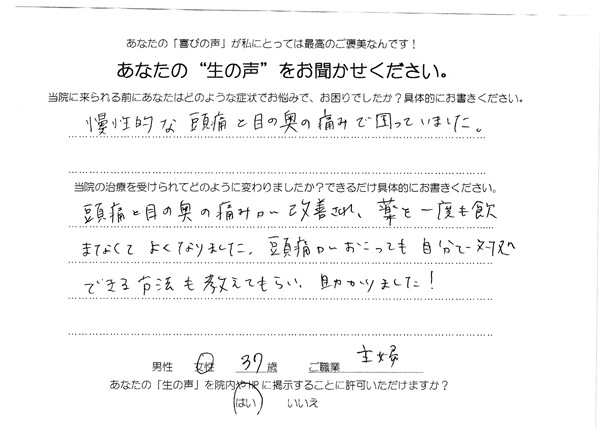 あなたの「喜びの声」が私にとっては最高のご褒美なんです！
あなたの“生の声”をお聞かせください。
当院に来られる前にあなたはどのような症状でお悩みで、お困りでしたか？具体的にお書きください。
慢性的な頭痛と目の奥の痛みで困っていました。
当院の治療を受けられてどのように変わりましたか？できるだけ具体的にお書きください。
頭痛と目の奥の痛みが改善され、薬を一度も飲
まなくてよくなりました。頭痛がおこっても自分で
できる方法も教えてもらい、助かりました！
男性 女性 37歳 ご職業 主婦
あなたの「生の声」を院内やHPに掲示することに許可いただけますか？
はい いいえ